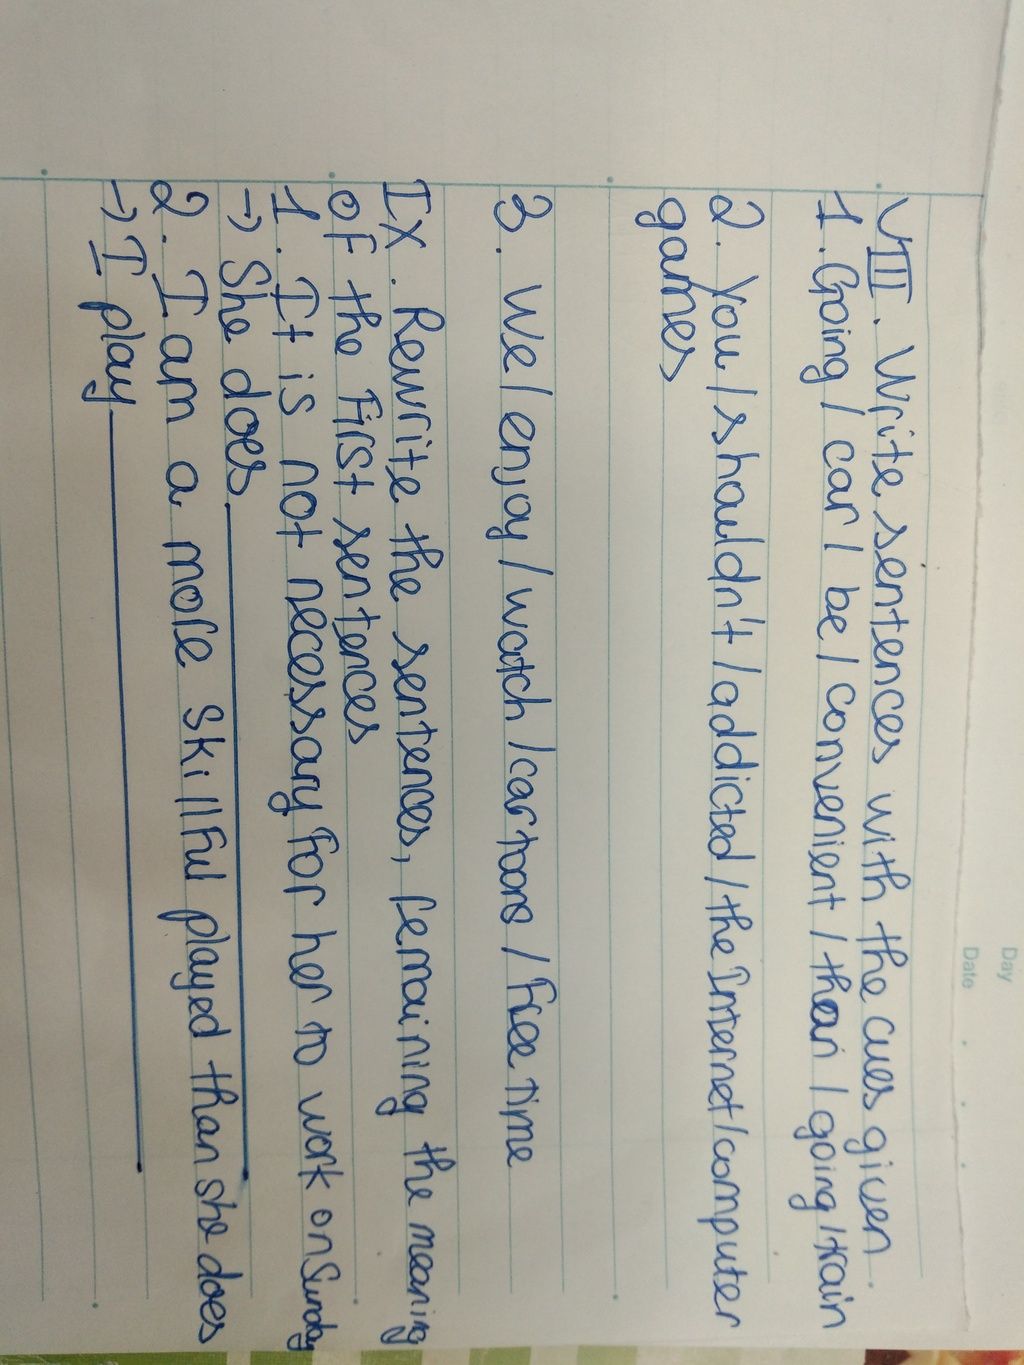 Day
Date
VIII. Write sentences with the cues given.
1. Going / car / be / convenient / than / going / train
2. You / shouldn't / addicted / the Internet / computer
games
3. We / enjoy / watch / cartoons / free time
IX. Rewrite the sentences, remaining the meaning
of the First sentences
1. It is not necessary for her to work on Sunday
→ She does
2. I am a more skillful played than she does
→ I play